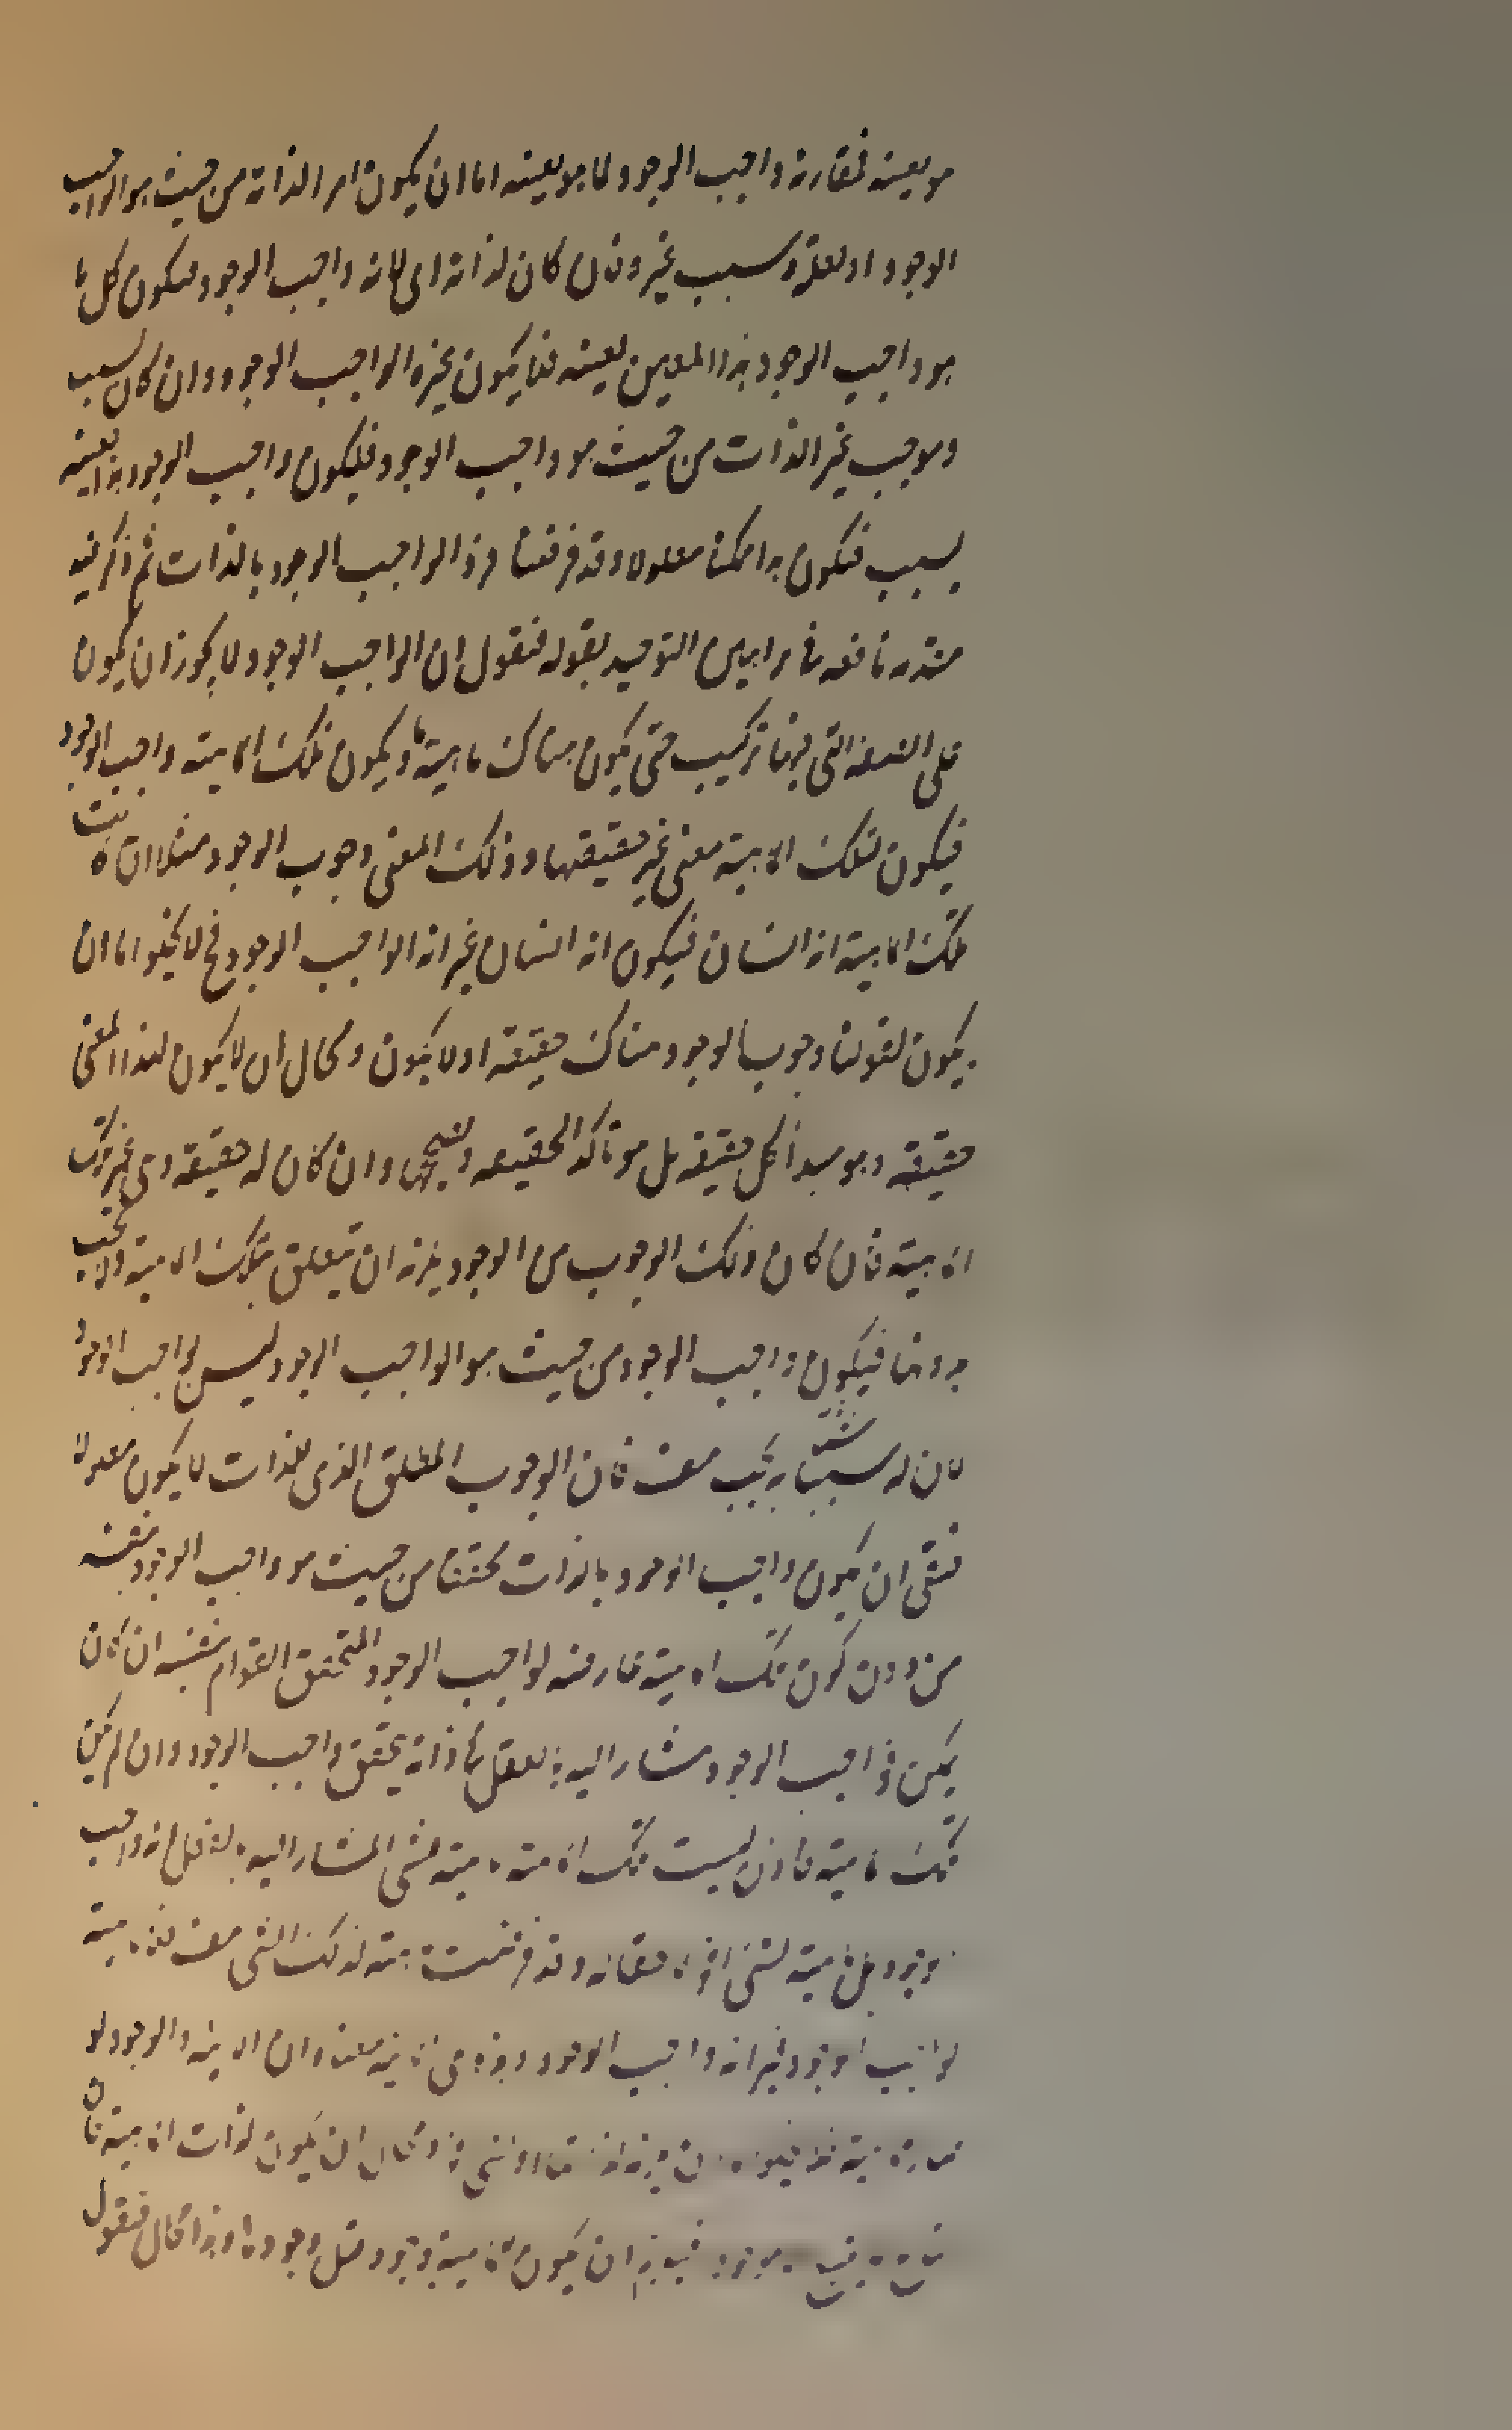 هو بعينه فمقارنة واجب الوجود لما هو بعينه اما ان يكون امر الذاته من حيث هو الواجب
الوجود او لعلة وسبب غيره فان كان لذاته اى لانه واجب الوجود فيكون كل ما
هو واجب الوجود هذا المعين بعينه فلا يكون غيره الواجب الوجود وان كان لسبب
وموجب غير الذات من حيث هو واجب الوجود فليكون واجب الوجود هذا بعينه
بسبب فيكون هذا ممكنا معلولا وقد فرضنا هذا الواجب الوجود بالذات ثم ذكر فيه
مقدمة نافعة فى براهين التوحيد بقوله فنقول ان الواجب الوجود لا يجوز ان يكون
على الصفة التى فيها تركيب حتى يكون هناك ماهية ما ويكون تلك الماهية واجب الوجود
فيكون لتلك الماهية معنى غير حقيقتها وذلك المعنى وجوب الوجود مثلا ان كانت
تلك الماهية انه انسان فيكون انه انسان غير انه الواجب الوجود فح لا يخلو اما ان
يكون لقولنا وجوب الوجود هناك حقيقة او لا يكون ومحال ان لا يكون لهذا المعنى
حقيقة وهو مبدأ كل حقيقة بل هو تأكد الحقيقة وتصحيحها وان كان له حقيقة وهى غير تلك
الماهية فان كان ذلك الوجوب من الوجود يلزمه ان يتعلق بتلك الماهية ولا يجب
بدونها فيكون واجب الوجود من حيث هو الواجب الوجود ليس بواجب الوجود
لان له سببا به يجب هف فان الوجوب المطلق الذى بالذات لا يكون معلولا
فبقى ان يكون واجب الوجود بالذات محققا من حيث هو واجب الوجود بنفسه
من دون كون تلك الماهية عارضة لواجب الوجود المتحقق القوام بنفسه ان كان
يمكن فواجب الوجود مشار اليه بالعقل فى ذاته يتحقق واجب الوجود وان لم يكن
تلك ماهية فاذن ليست تلك الماهية ماهية للشى المشار اليه بالعقل انه واجب
الوجود بل ماهية لشى اخر لاحق له وقد فرضت ماهية لذلك الشى هف فلا ماهية
لواجب الوجود غير انه واجب الوجود وهذه هى الانية فان الانية والوجود لو
ان يكون لذات الماهية فان
ان يكون للماهية وجود قبل وجودها وهذا محال فنقول